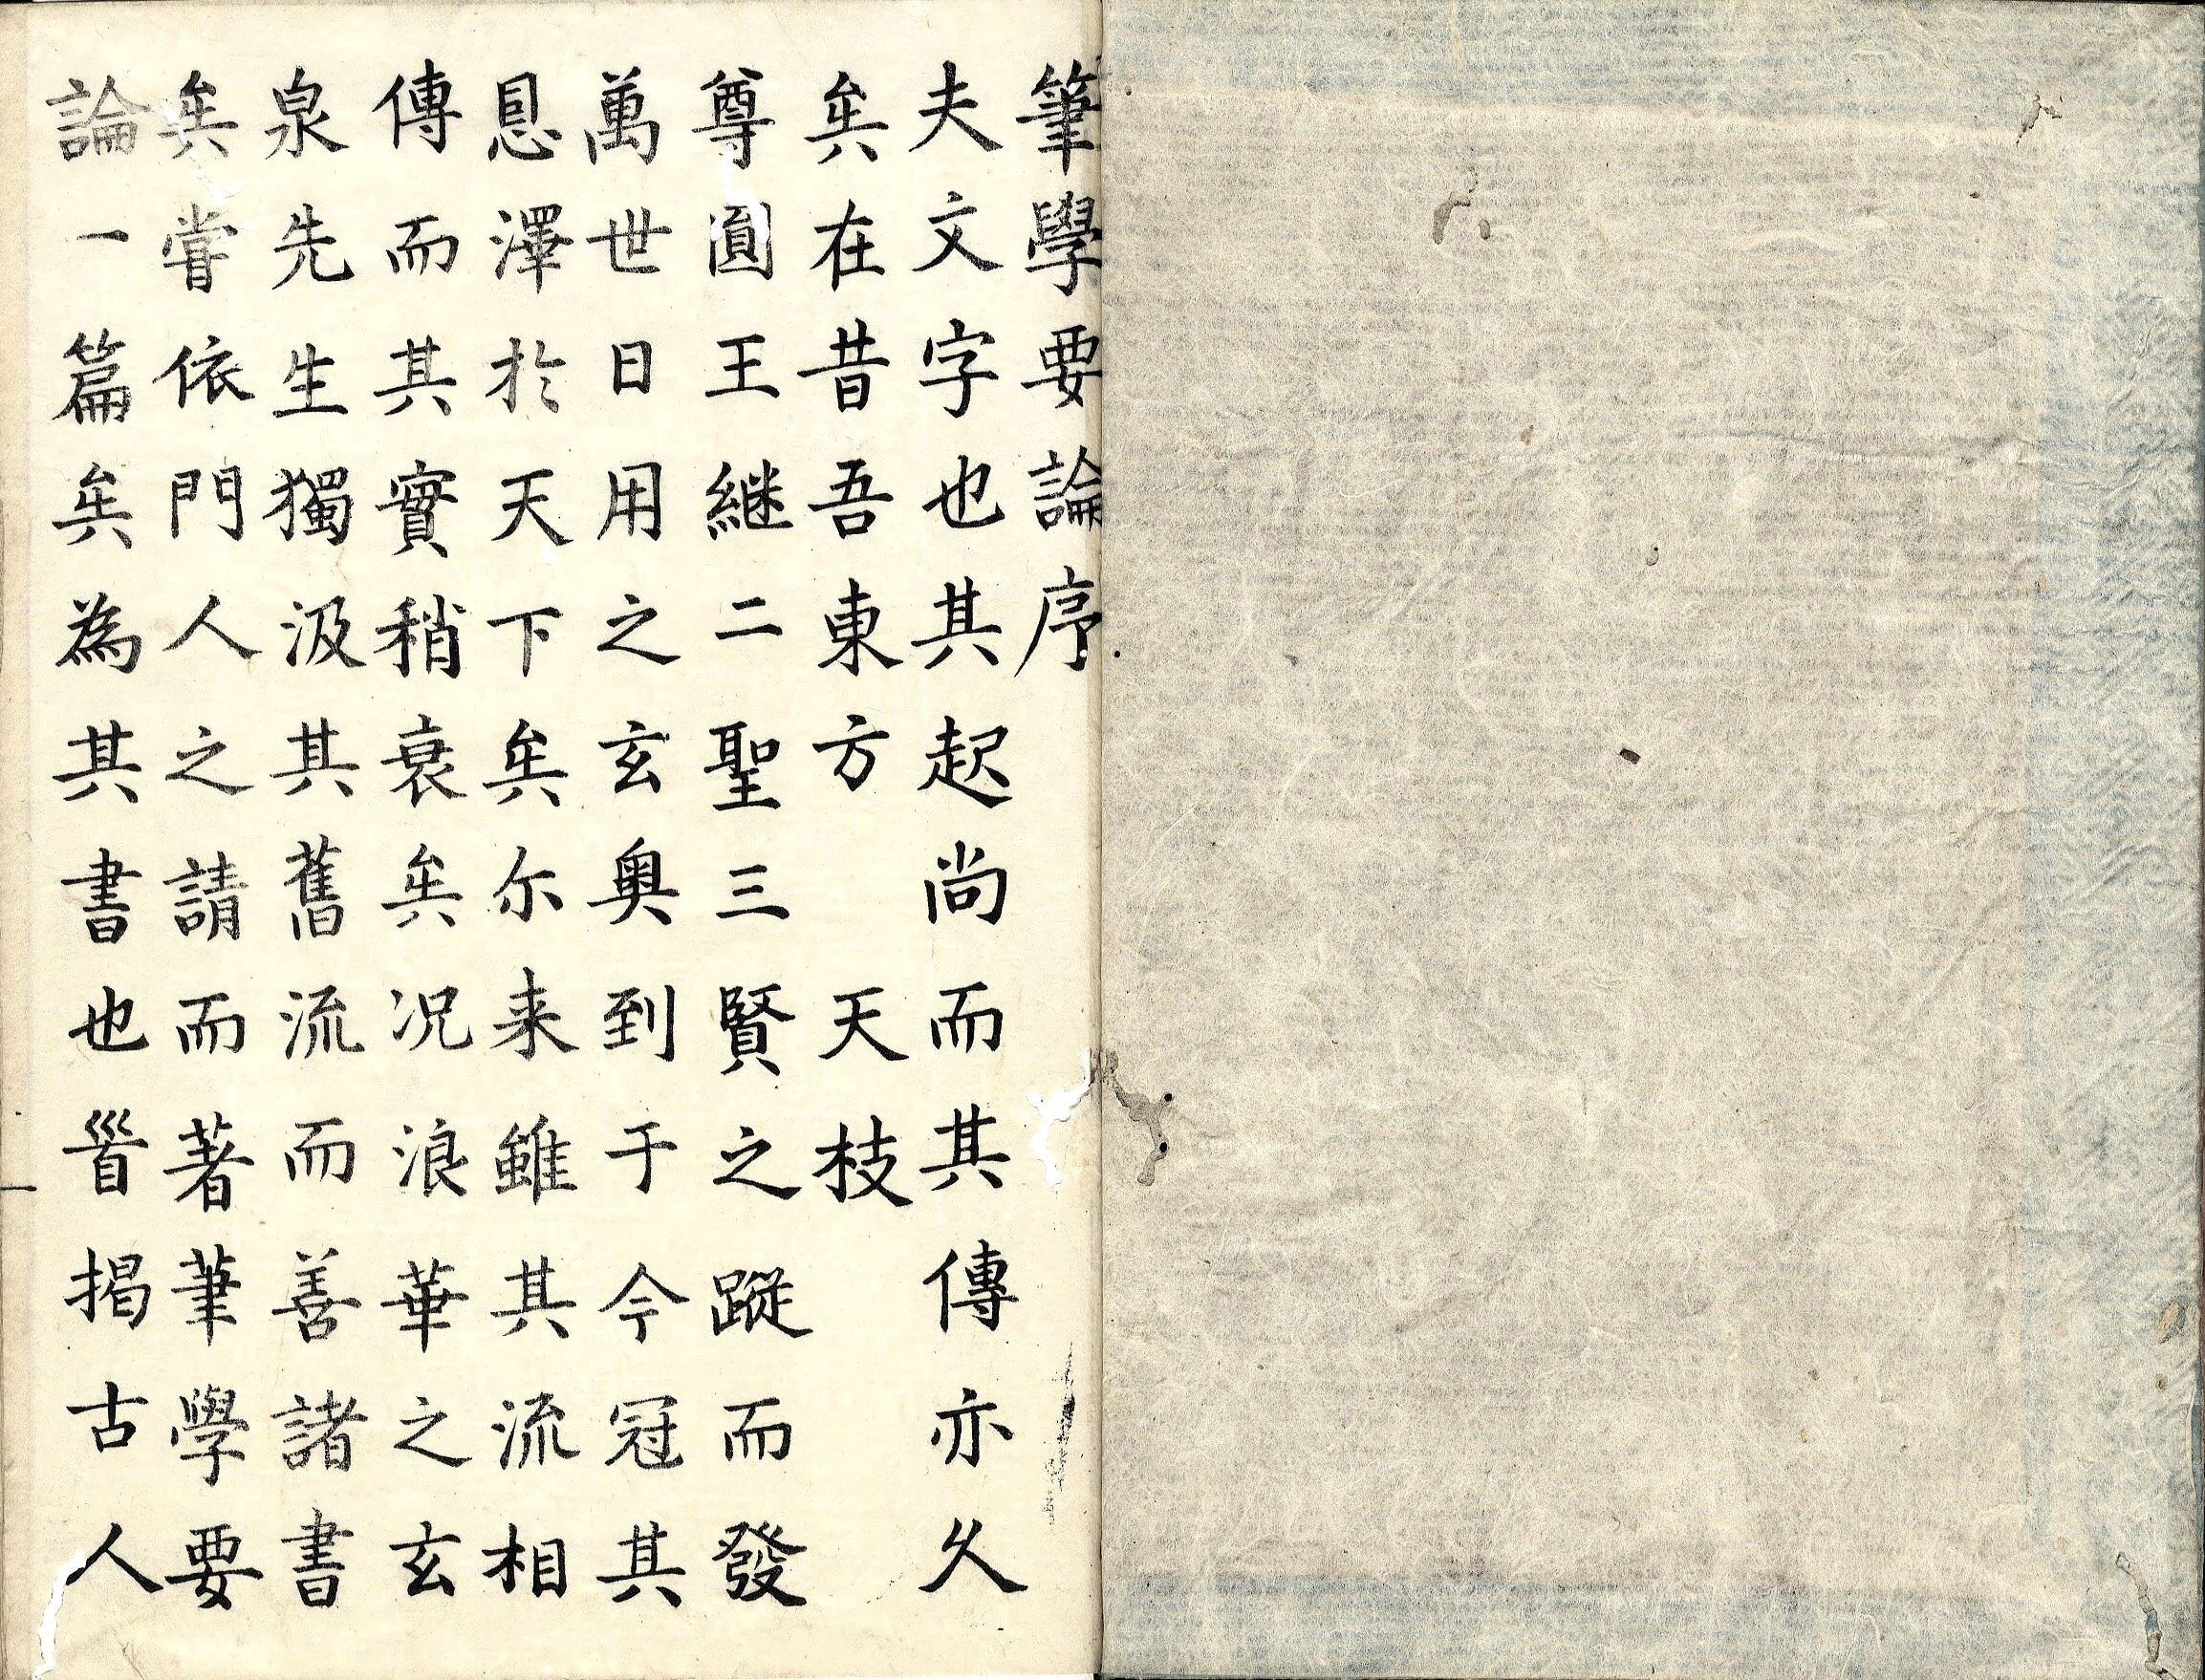 筆學要論序
夫文字也其起尚而其傳亦久
矣在昔吾東方天枝
尊圓王継二聖三賢之蹤而發
萬世日用之玄奥到于今冠其
恩澤於天下矣尓来雖其流相
傳而其實稍衰矣况浪華之玄
泉先生獨汲其舊流而善諸書
矣嘗依門人之請而著筆學要
論一篇矣為其書也皆揭古人